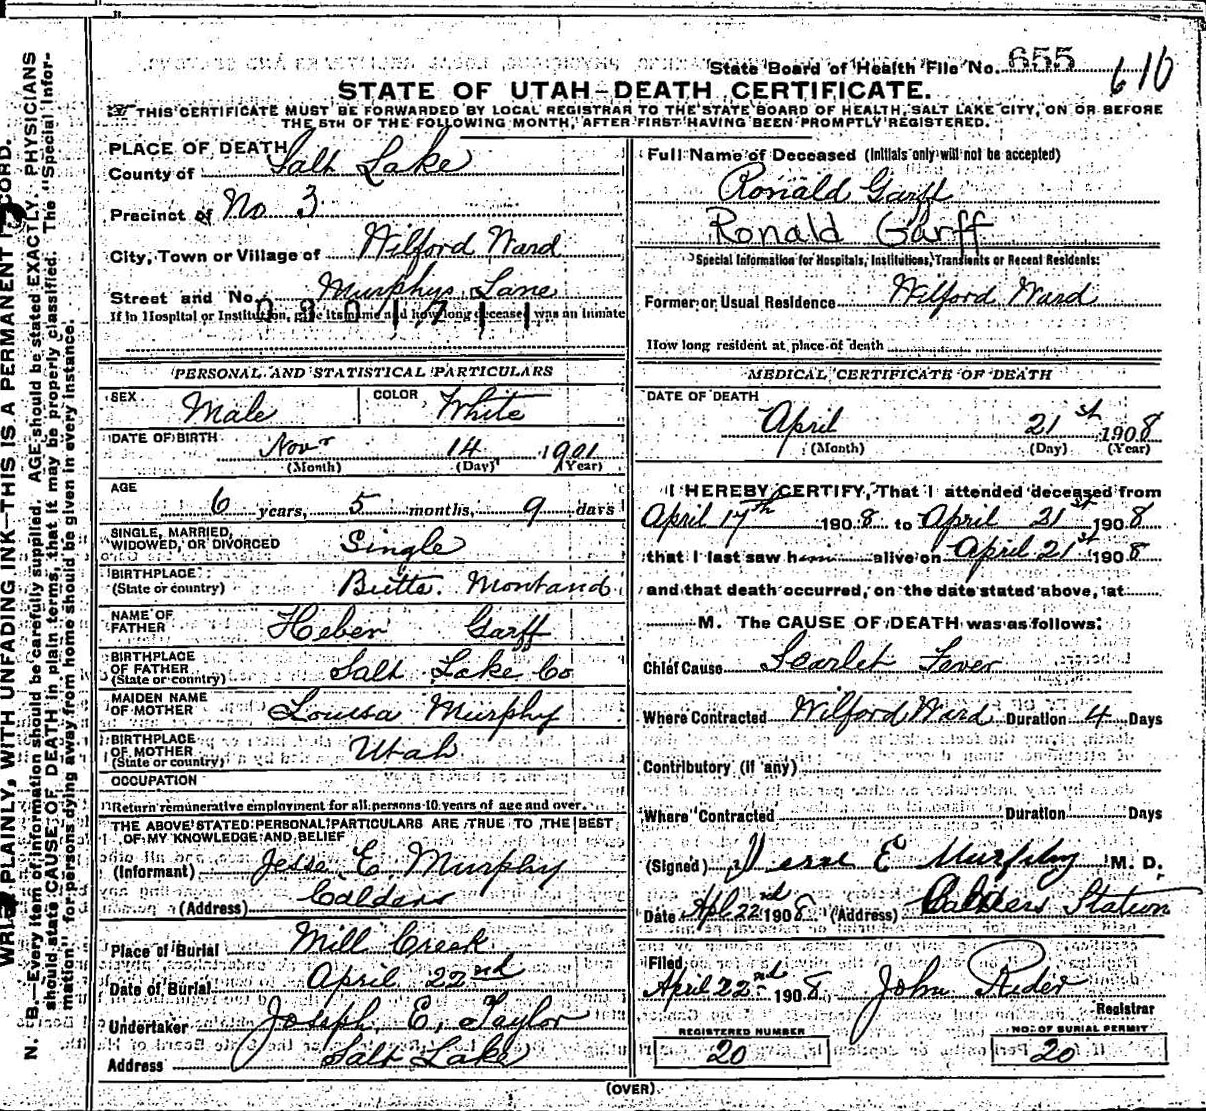 State Board of Health File No. 655
610
STATE OF UTAH—DEATH CERTIFICATE.
THIS CERTIFICATE MUST BE FORWARDED BY LOCAL REGISTRAR TO THE STATE BOARD OF HEALTH, SALT LAKE CITY, ON OR BEFORE
THE 5TH OF THE FOLLOWING MONTH, AFTER FIRST HAVING BEEN PROMPTLY REGISTERED.
PLACE OF DEATH
County of Salt Lake
Precinct of No 3
City, Town or Village of Wilford Ward
Street and No. Murphys Lane
If in Hospital or Institution, give its name and how long deceased was an inmate
PERSONAL AND STATISTICAL PARTICULARS
SEX Male COLOR White
DATE OF BIRTH Novr 14 1901
(Month) (Day) (Year)
AGE
6 years, 5 months, 9 days
SINGLE, MARRIED,
WIDOWED, OR DIVORCED Single
BIRTHPLACE
(State or country) Butte. Montana
NAME OF
FATHER Heber Garff
BIRTHPLACE
OF FATHER
(State or country) Salt Lake Co
MAIDEN NAME
OF MOTHER Louisa Murphy
BIRTHPLACE
OF MOTHER
(State or country) Utah
OCCUPATION
Return remunerative employment for all persons 10 years of age and over.
THE ABOVE STATED PERSONAL PARTICULARS ARE TRUE TO THE BEST
OF MY KNOWLEDGE AND BELIEF
(Informant) Jesse E. Murphy
(Address) Calders
Place of Burial Mill Creek
Date of Burial April 22nd
Undertaker Joseph E. Taylor
Address Salt Lake
Full Name of Deceased (Initials only will not be accepted)
Ronald Garff
Ronald Garff
Special Information for Hospitals, Institutions, Transients or Recent Residents:
Former or Usual Residence Wilford Ward
How long resident at place of death
MEDICAL CERTIFICATE OF DEATH
DATE OF DEATH
April 21st 1908
(Month) (Day) (Year)
I HEREBY CERTIFY, That I attended deceased from
April 17th 1908 to April 21st 1908
that I last saw him alive on April 21st 1908
and that death occurred, on the date stated above, at
M. The CAUSE OF DEATH was as follows:
Chief Cause Scarlet Fever
Where Contracted Wilford Ward Duration 4 Days
Contributory (if any)
Where Contracted Duration Days
(Signed) E Murphy M. D.
Date Apl 22nd 1908 (Address) Calders Station
Filed
April 22nd 1908 John Rider
Registrar
REGISTERED NUMBER
20
NO. OF BURIAL PERMIT
20
(OVER)
PLAINLY, WITH UNFADING INK—THIS IS A PERMANENT RECORD.
N. B.—Every item of information should be carefully supplied. AGE should be stated EXACTLY. PHYSICIANS
should state CAUSE OF DEATH in plain terms, that it may be properly classified. The "Special Infor-
mation" for persons dying away from home should be given in every instance.